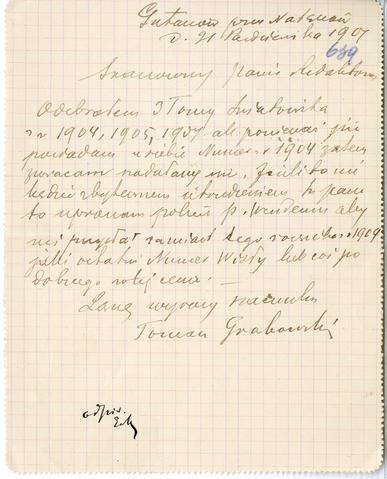 d. 21 Października 1907
689
Szanowny Panie Redaktorze
Odebrałem 3 Tomy Światowita
z r 1904, 1905, 1907 ale ponieważ już
posiadam u siebie Numer z r 1904 zatem
zwracam nadesłany mi. Jeżeli to nie
będzie zbytecznem utrudnieniem to pana
to upraszam polecić p. Wendemu aby
mi przysłał zamiast tego rocznika 1909
jeśli ostatni Numer Wisły lub coś po
dobnego w tej cenie. —
Łączę wyrazy szacunku
Toman Grabowski
odpis.